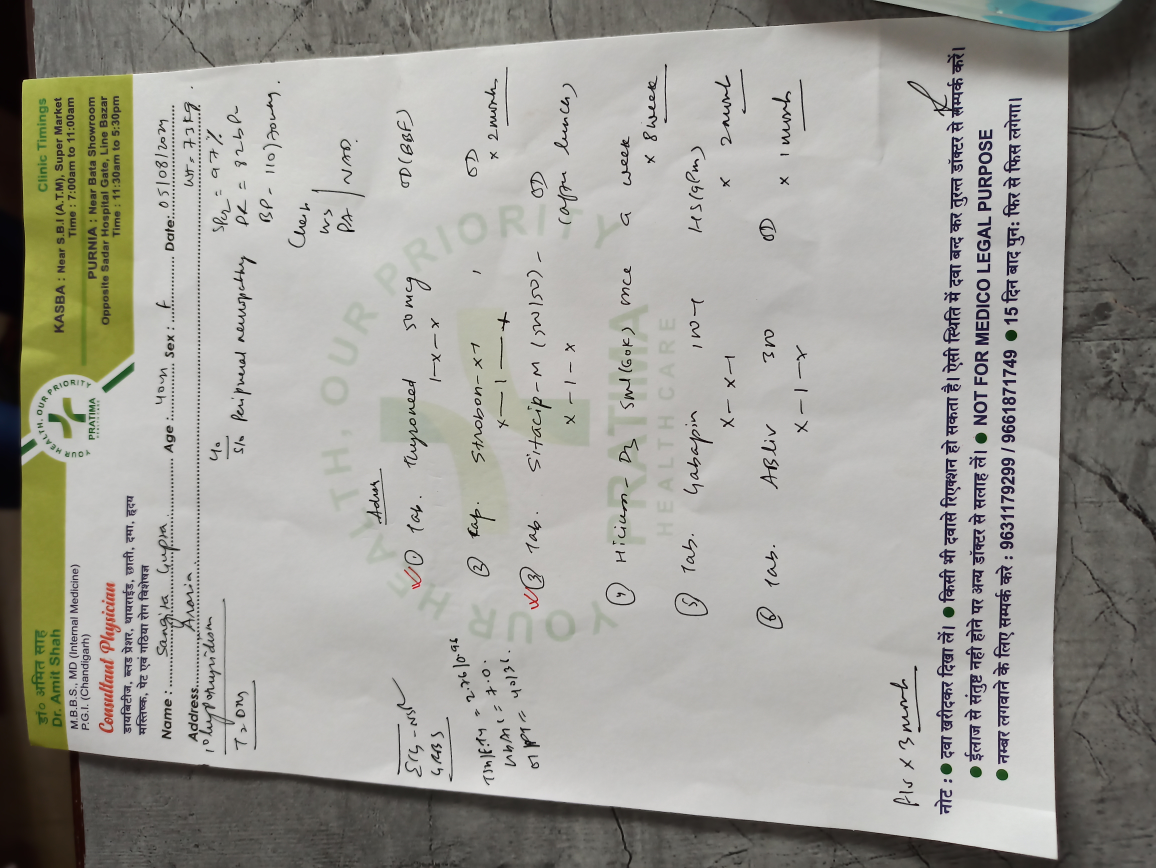 डॉ० अमित साह
Dr. Amit Shah
M.B.B.S., MD (Internal Medicine)
P.G.I. (Chandigarh)
Consultant Physician
डायबिटीज, ब्लड प्रेशर, थायराईड, छाती, दमा, हृदय
मस्तिष्क, पेट एवं गठिया रोग विशेषज्ञ
YOUR HEALTH, OUR PRIORITY
PRATIMA
Clinic Timings
KASBA : Near S.B.I (A.T.M), Super Market
Time : 7:00am to 11:00am
PURNIA : Near Bata Showroom
Opposite Sadar Hospital Gate, Line Bazar
Time : 11:30am to 5:30pm
Name : Sangita Gupta Age : 40 Sex : F Date: 05/08/2024
Address Araria WT = 73 Kg.
1° hypothyroidism
T2DM
Peripheral neuropathy
SPO2 = 97%
PR = 82 bPm
BP - 110/70 mmHg.
Chest
PA / NAD.
Advice
ECG - NSR
GRBS
HbA1C = 7.0.
① Tab. Thyroneed 50 mcg OD (BBF)
1-x-x
② Cap. Strobon-XT OD
x-1-x x 2 month
③ Tab. Sitacip-M (50/50) - OD
x-1-x (after lunch)
④ Hicium-D3 5ml (60K) once a week
x 8 week
⑤ Tab. Gabapin HS (9Pm)
x-x-1 x 2 month
⑥ Tab. ABliv 300 OD
x-1-x x 1 month
YOUR HEALTH, OUR PRIORITY
PRATIMA
HEALTH CARE
x 3 month
नोट : ● दवा खरीदकर दिखा लें। ● किसी भी दवासे रिएक्शन हो सकता है। ऐसी स्थिति में दवा बन्द कर तुरन्त डॉक्टर से सम्पर्क करें।
● ईलाज से संतुष्ट नही होने पर अन्य डॉक्टर से सलाह लें। ● NOT FOR MEDICO LEGAL PURPOSE
● नम्बर लगवाने के लिए सम्पर्क करे : 9631179299 / 9661871749 ● 15 दिन बाद पुन: फिर से फिस लगेगा।